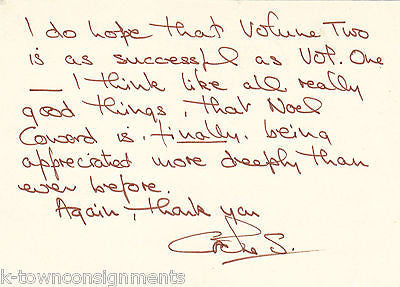 I do hope that Volume Two
is as successful as Vol. One
— I think like all really
good things, that Noel
Coward is finally being
appreciated more deeply than
ever before.
Again, thank you
S.
k-townconsignments